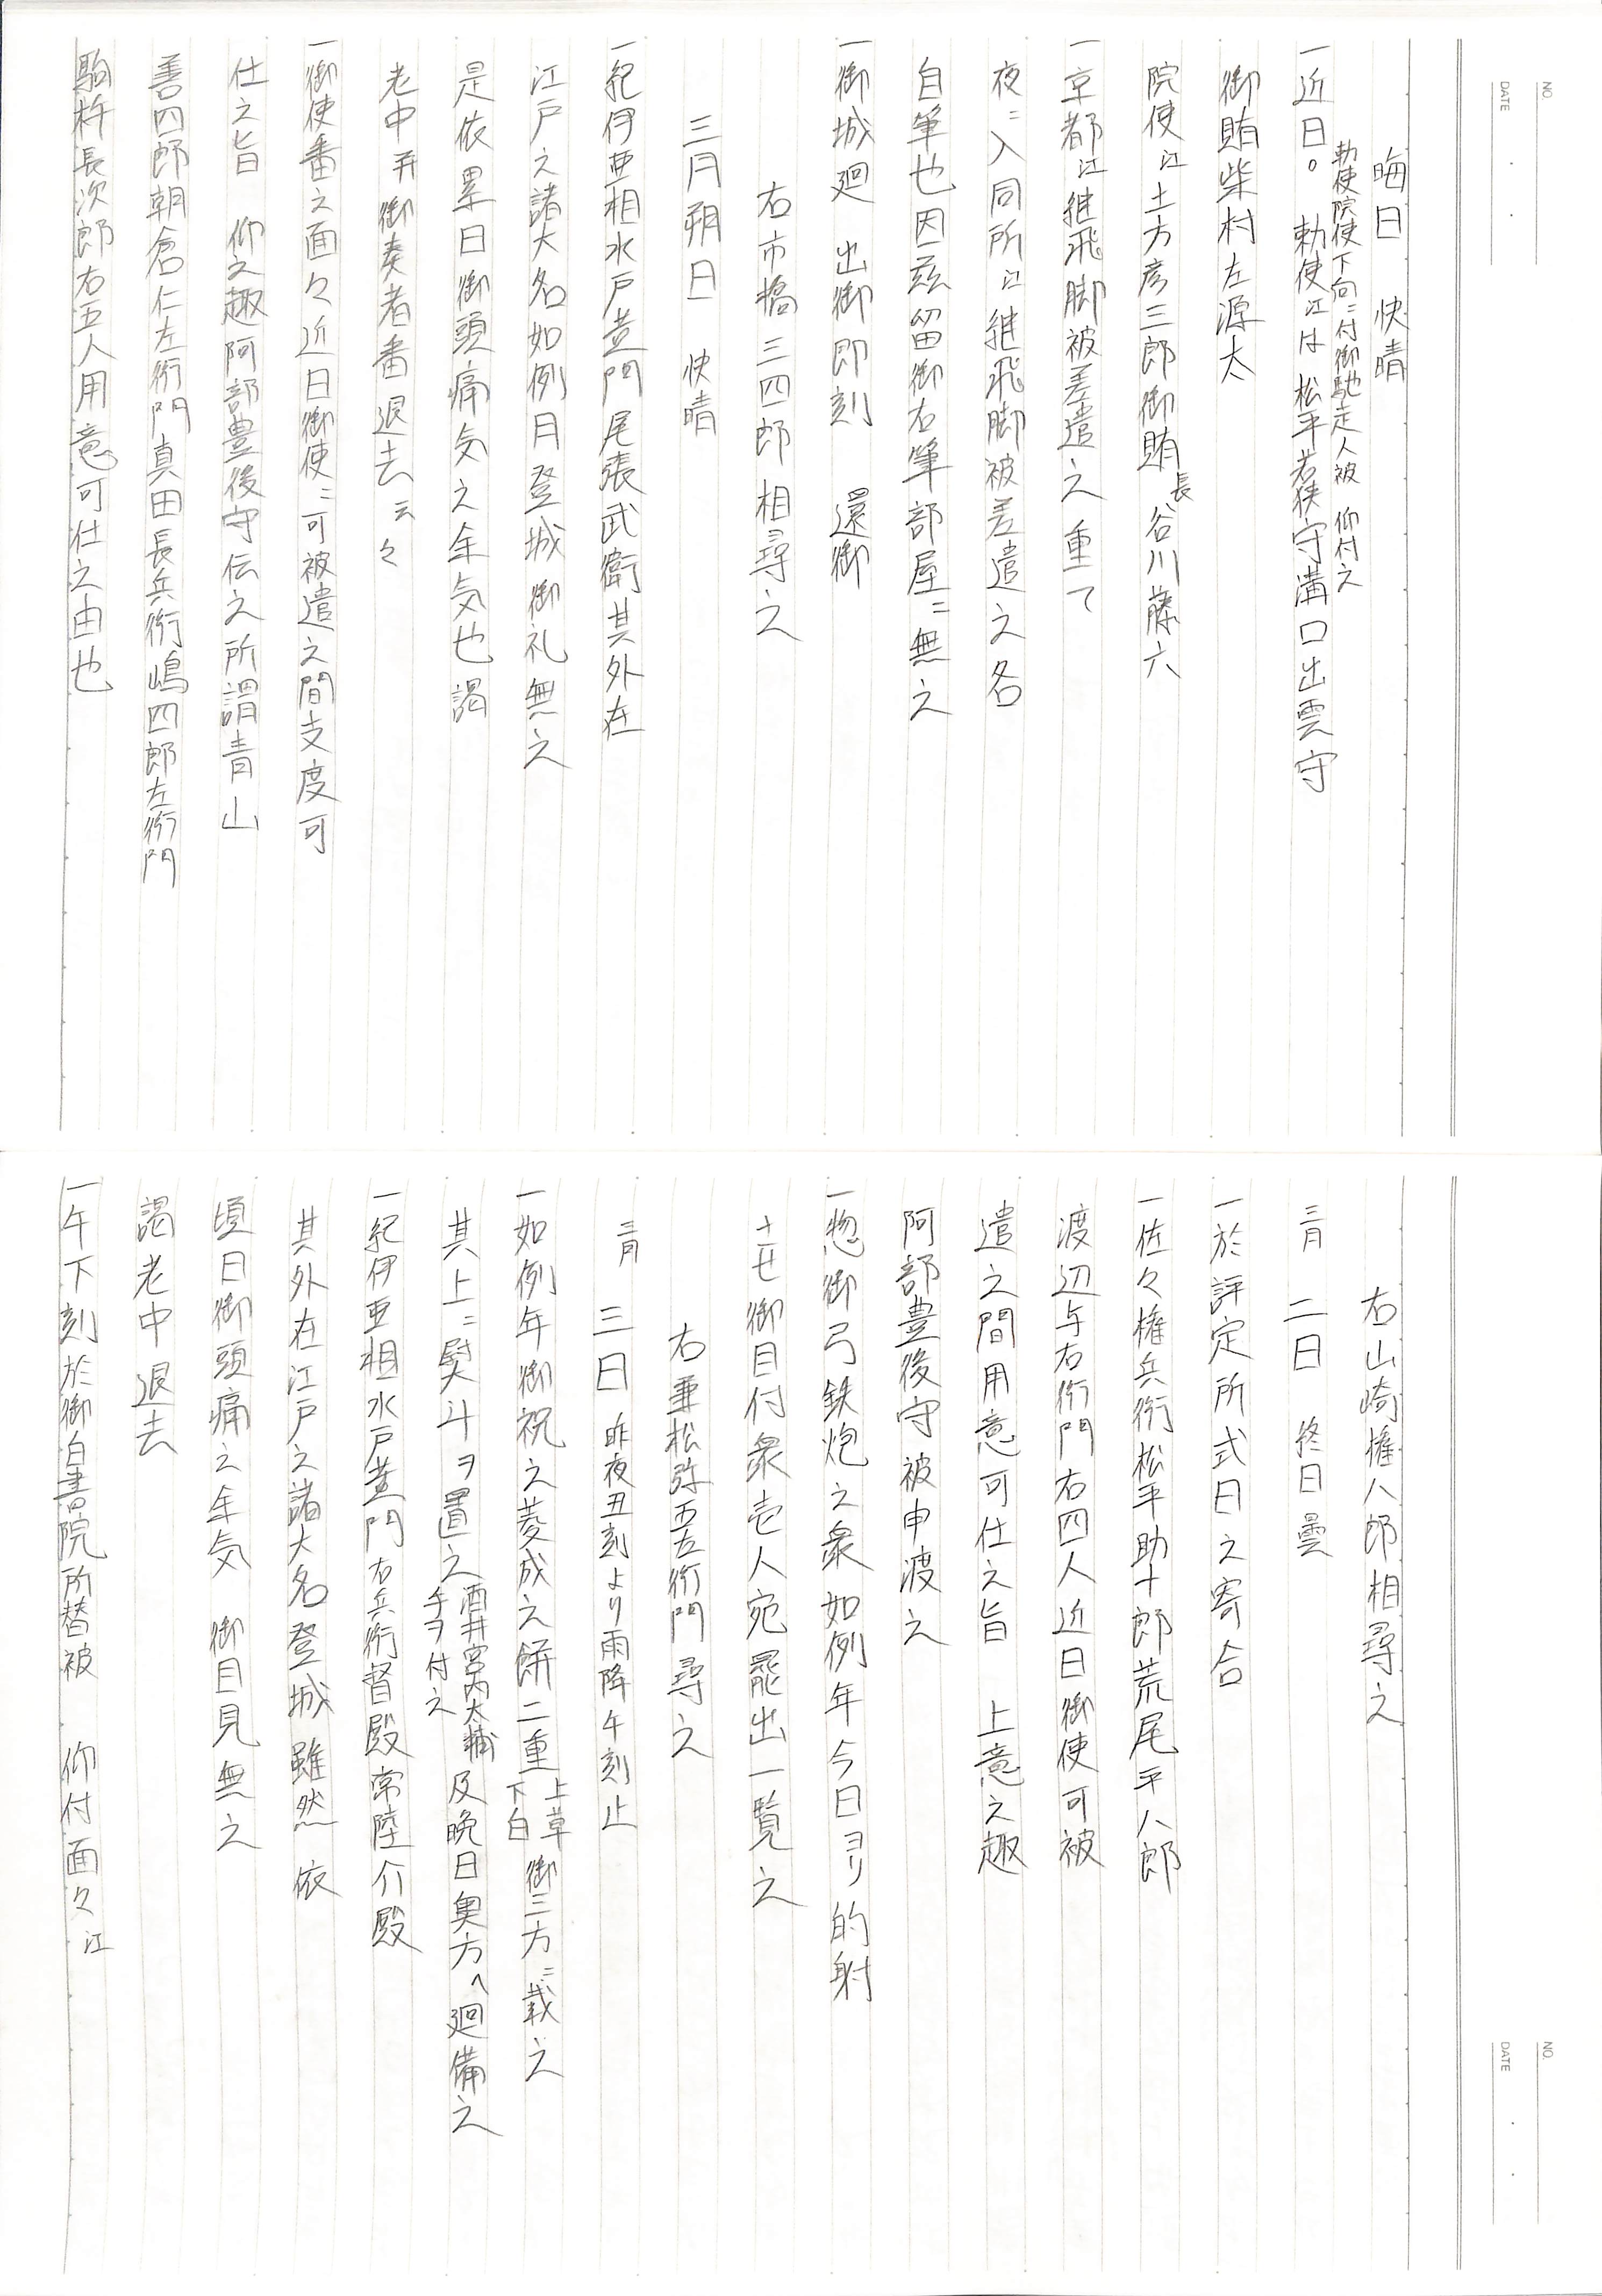 晦日　快晴
勅使院使下向ニ付御馳走人被　仰付之
一近日。　勅使江は　松平若狭守溝口出雲守
御賄柴村左源太
院使江土方彦三郎御賄長谷川藤六
一京都江継飛脚被差遣之重て
夜ニ入同所江継飛脚被差遣之各
自筆也因茲留御右筆部屋ニ無之
一御城廻　出御即刻　還御
右市橋三四郎相尋之
三月朔日　快晴
一紀伊亜相水戸黄門尾張武衛其外在
江戸之諸大名如例月登城御礼無之
是依累日御頭痛気之余気也謁
老中并御奏者番退去云々
一御使番之面々近日御使ニ可被遣之間支度可
仕之旨　仰之趣阿部豊後守伝之所謂青山
善四郎朝倉仁左衛門真田長兵衛嶋四郎左衛門
駒杵長次郎右五人用意可仕之由也
右山崎権八郎相尋之
三月　二日　終日曇
一於評定所式日之寄合
一佐々権兵衛松平助十郎荒尾平八郎
渡辺与右衛門右四人近日御使可被
遣之間用意可仕之旨　上意之趣
阿部豊後守被申渡之
一惣御弓鉄炮之衆如例年今日ヨリ的射
十一廿御目付衆壱人宛罷出一覧之
右兼松弥五左衛門尋之
三月　三日　昨夜丑刻より雨降午刻止
一如例年御祝之菱成之餅二重　上草　下白　御三方ニ載之
其上ニ熨斗ヲ置之　酒井宮内大輔　手ヲ付之　及晩日奥方へ廻備之
一紀伊亜相水戸黄門右兵衛督殿常陸介殿
其外在江戸之諸大名登城雖然　依
頃日御頭痛之余気　御目見無之
謁老中退去
一午下刻於御白書院所替被　仰付面々江
NO.
DATE　・　・
NO.
DATE　・　・